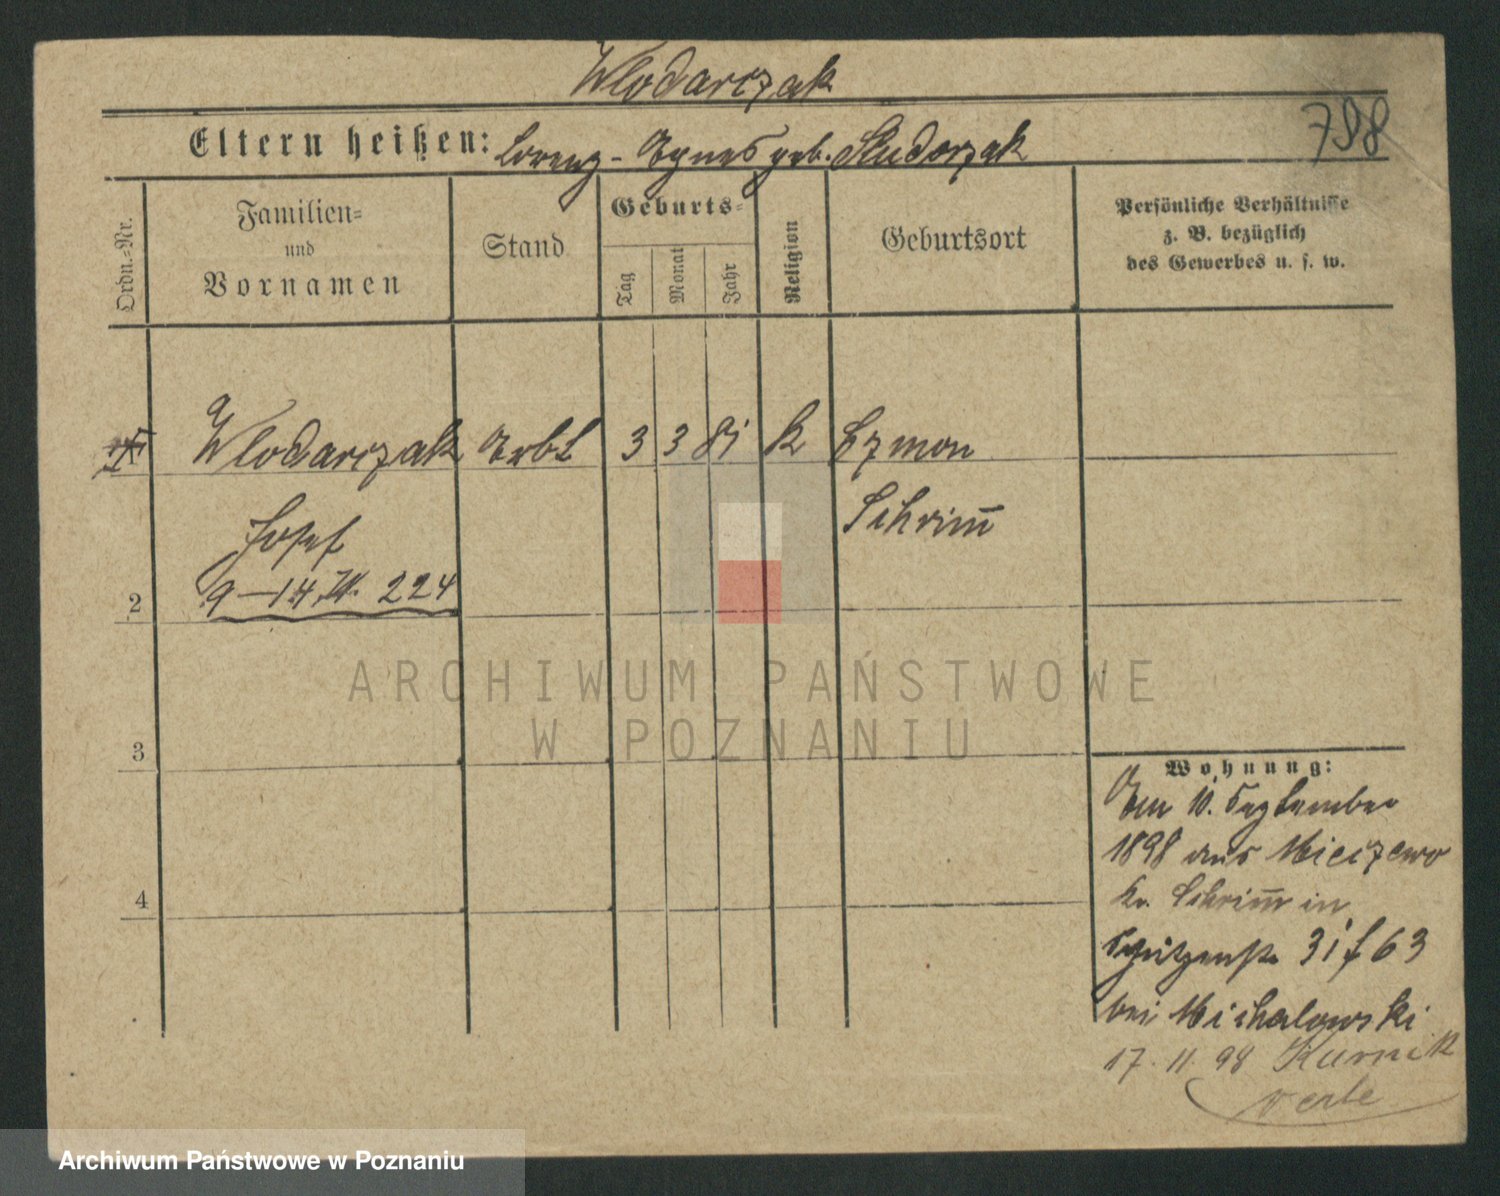 Wlodarczak
798
Eltern heißen: Lorenz - Agnes geb. Studorzak
Ordn.-Nr.
Familien-
und
Vornamen
Stand
Geburts-
Tag
Monat
Jahr
Religion
Geburtsort
Persönliche Verhältnisse
z. B. bezüglich
des Gewerbes u. s. w.
Wlodarczak Arbt 3 3 81 K Czmon
Schrim̄
Josef
9-14. 224
2
3
4
ARCHIWUM PAŃSTWOWE
W POZNANIU
Wohnung:
Am 10. September
1898 aus Mieczewo
Kr. Schrim̄ in
Schützenstr 31 f 63
bei Michalowski
17. 11. 98 Kurnik
Archiwum Państwowe w Poznaniu